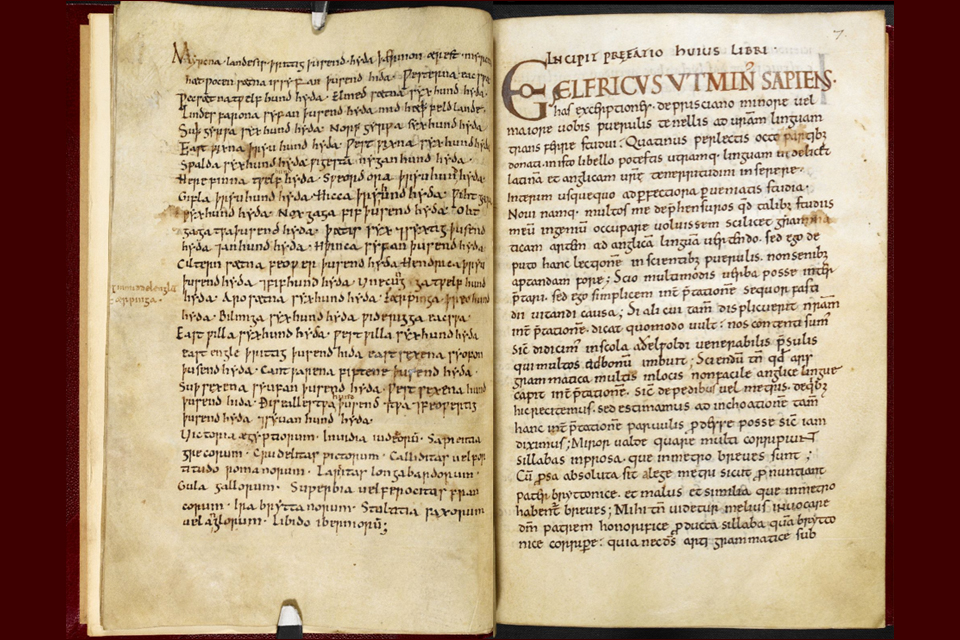 Myrcna landes is þrittig þusend hyda þær mon ærest myrcna
hæt. Wocen sætna is syfan þusend hida. Westerna eac swa.
Pecsætna twelf hund hyda. Elmed sætna syx hund hyda.
Lindes farona syfan þusend hyda mid hæþ feld lande.
Suþ gyrwa syx hund hyda. Norþ gyrwa syx hund hyda.
East wixna þryu hund hyda. West wixna syx hund hyda
Spalda syx hund hyda. Wigesta nygan hund hyda.
Herefinna twelf hund hyda. Sweord ora þryu hund hyda.
Gifla þryu hund hyda. Hicca þryu hund hyda. Wiht gara
syx hund hyda. Nox gaga fif þusend hyda. Oht
gaga twa þusend hyda. þæt is syx ⁊ syxtig þusend
hyda ⁊ an hund hyda. Hwinca syfan þusend hyda.
Ciltern sætna feower þusend hyda. Hendrica þryu
þusend hyda ⁊ fif hund hyda. Unecunȝ ga twelf hund
hyda. Aro sætna syx hund hyda. Færpinga þreo hund
hyda. Bilmiga syx hund hyda. Widerigga eac swa.
East willa syx hund hyda. West willa syx hund hyda
east engle þrittig þusend hida. east sexena syofon
þusend hyda. Cantwarena fiftene þusend hyda.
Suþ sexena syufan þusend hyda. West sexena hund
þusend hida. Ðis ealles twa hund þusend ⁊ twa ⁊ feowertig
þusend hyda ⁊ syuan hund hyda.
Victoria ægyptiorum. Inuidia iudeorū. Sapientia
grecorum. Crudelitas pictorum. Calliditas uel for
titudo romanorum. Largitas longabardorum.
Gula gallorum. Superbia uel ferocitas fran
corum. Ira bryttanorum. Stultitia saxorum
uel anglorum. Libido iberniorū;
7
INCIPIT PREFATIO HUIUS LIBRI
EGO ÆLFRICVS VT MINꝰ SAPIENS.
has excerptiones. de prisciano minore uel
maiore uobis puerulis tenellis ad uram linguam
transferre studui. Quatinus perlectis octo partibꝫ
donati. in isto libello potestis utramqꝫ linguam uidelicet
latinā et anglicam uꝛ̄e teneritudini inserere.
Interim usquequo ad perfectiora pueniatis studia.
Noui namqꝫ multos me dep̄hensuros qđ talibꝫ studiis
meū ingeniū occupare uoluissem scilicet gramma
ticam artem ad anglicā linguā uertendo. sed ego de
puto hanc lectionē inscientibus puerulis. non senibꝫ
aptandam fore; Scio multimodis uerba posse inter
p̄tari. sed ego simplicem int̄p̄tationē sequor fasti
dii uitandi causa; Si alicui tam̄ displicuerit nr̄am
int̄p̄tationē. dicat quomodo uult. nos contenti sumꝰ
sic̄ didicimꝰ in scola aðelpoldi uenerabilis p̄sulis
qui multos ad bonū imbuit; Sciendū tn̄ qđ ars
grammatica multis in locis non facile anglice lingue
capit int̄p̄tationē. sic̄ de pedibus uel metris. de qꝫ
hic reticemus. sed estimamus ad inchoationē tam̄
hanc int̄p̄tationē paruulis ꝓdesse posse sic̄ iam
diximus; Miror ualde quare multi corripiunt
sillabas in prosa. que in metro breues sunt;
Cū ꝓsa absoluta sit a lege metri sicut ꝓnuntiant
pater bryttonice. et malus et similia que in metro
habent̄ breues; Mihi tn̄ uidetur melius inuocare
dm̄ patrem honorifice ꝓducta sillaba quā brytto
nice corripe. quia nec ds̄ arti grammatice sub